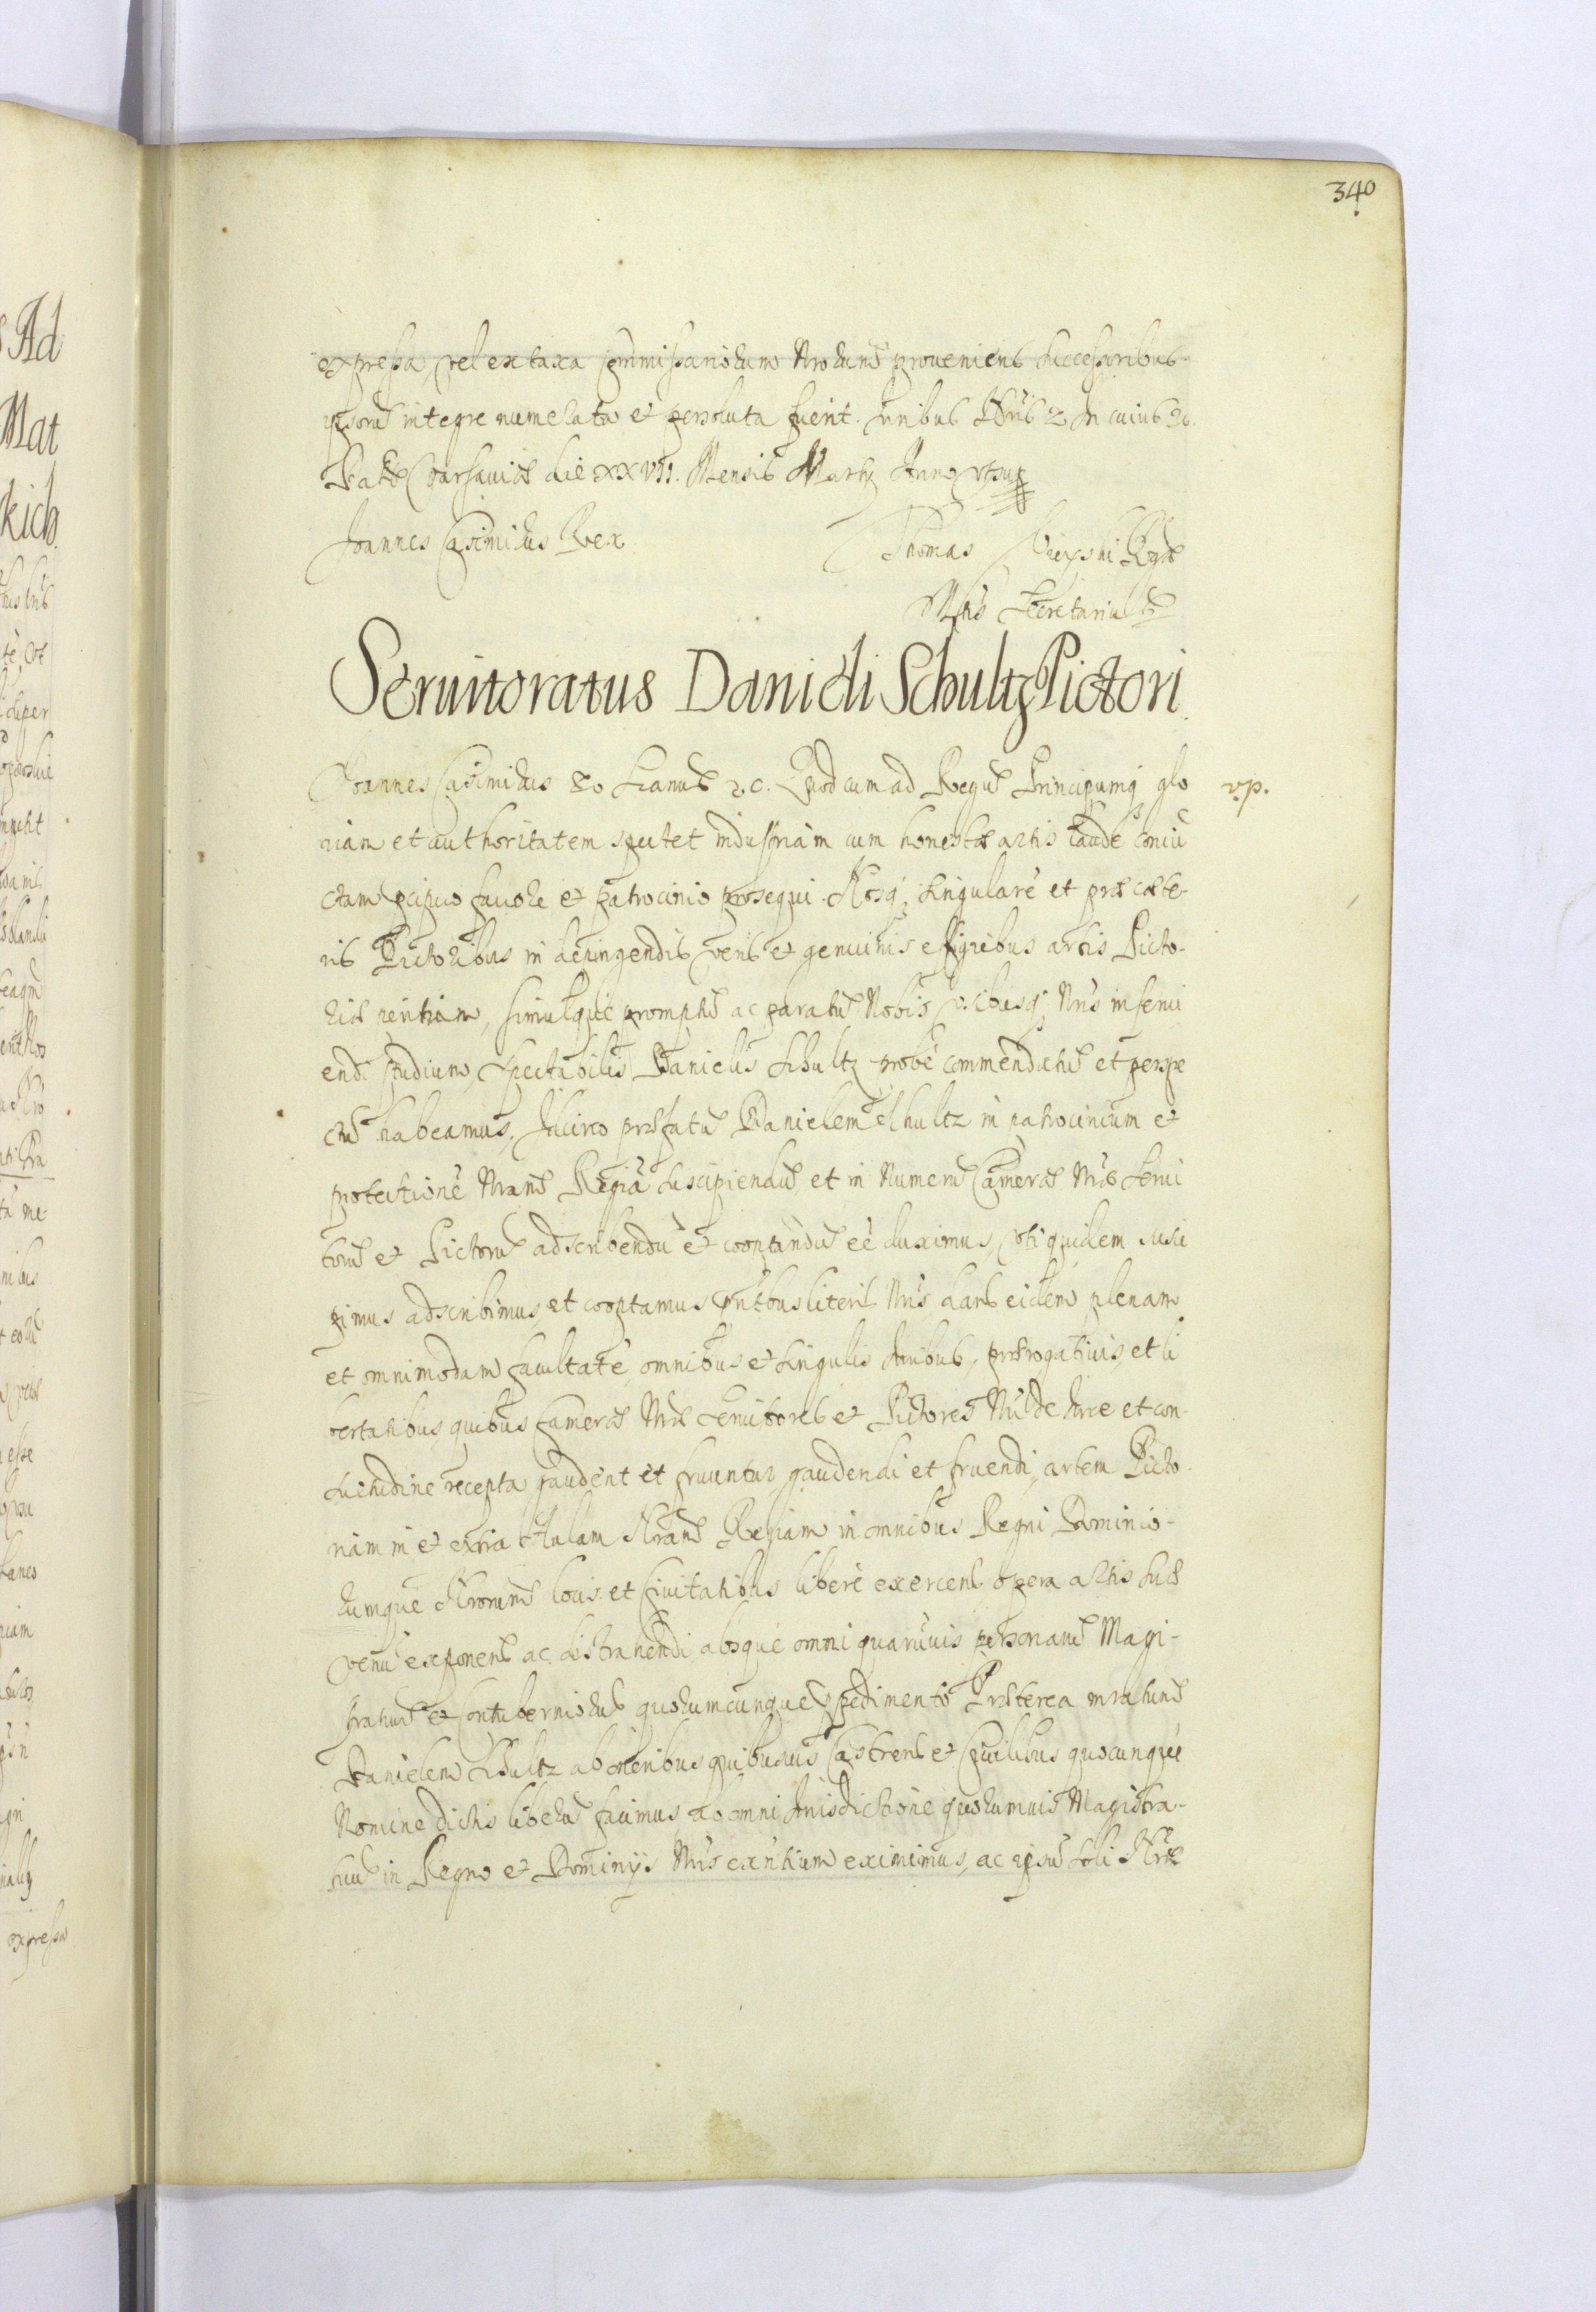 340
expressa, vel ex taxa Commissariorum Nrorum proueniens Successoribus
ipsorum integre numerata et persoluta fuerit. Iuribus Nris &c. In cuius &c.
Datum Varsauiae die XXVII. Mensis Martij Anno vtsupra
Joannes Casimirus Rex
Thomas Regiae
Mtis Secretarius
Seruitoratus Danieli Schultz Pictori
Joannes Casimirus &c. Quod cum ad Regum Principumq glo
v.p.
riam et authoritatem spectet industriam cum honestae artis laude coniu
ctam fauore et patrocinio prosequi. Nosq singularé et prae caete-
ris Pictoribus in depingendis veris et genuinis effigiebus artis Picto-
riae peritiam, simulque promptum ac paratum Nobis vsibusq Nris inserui
endi studium, Spectabilis Danielis Schultz probe commendatum et perspe
ctum habeamus, Idcirco praefatum Danielem Schultz in patrocinium et
protectioné Nram Regiã suscipiendum et in Numerum Camerae Nrae Serui
torum et Pictorum adscribendũ et cooptandum eé duximus, vti quidem susci
pimus adscribimus, et cooptamus pntibus literis Nris, dans eidem plenam
et omnimodam facultaté, omnibus et singulis Iuribus, praerogatiuis, et li
bertatibus quibus Camerae Nrae Seruitores et Pictores Nri de Iure et con-
suetudine recepta gaudent et fruuntur, gaudendi et fruendi, artem Picto
riam in et extra Aulam Nram Regiam in omnibus Regni Dominio-
rumque Nrorum locis et Ciuitatibus liberè exercens opera artis suae
venũ exponens ac distrahendi absque omni quarũuis personarum Magi-
stratuum et Contuberniorum quorumcunque impedimento. Praeterea
Danielem Schultz ab oneribus quibusuis Castrens et Ciuilibus quocunque
Nomine dictis liberum facimus ab omni Iurisdictione quorumuis Magistra-
tuum in Regno et Dominijs Nris exntium eximimus, ac ipsum soli Nrae